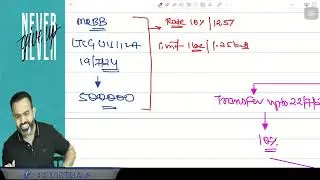 NEVER
give up
NEVER
LTCG U/s 112A
19/7/24
500000
Rate 10% / 12.5%
Limit - 1 lac / 1.25 lacs
Transfer upto 22/7/2
10%